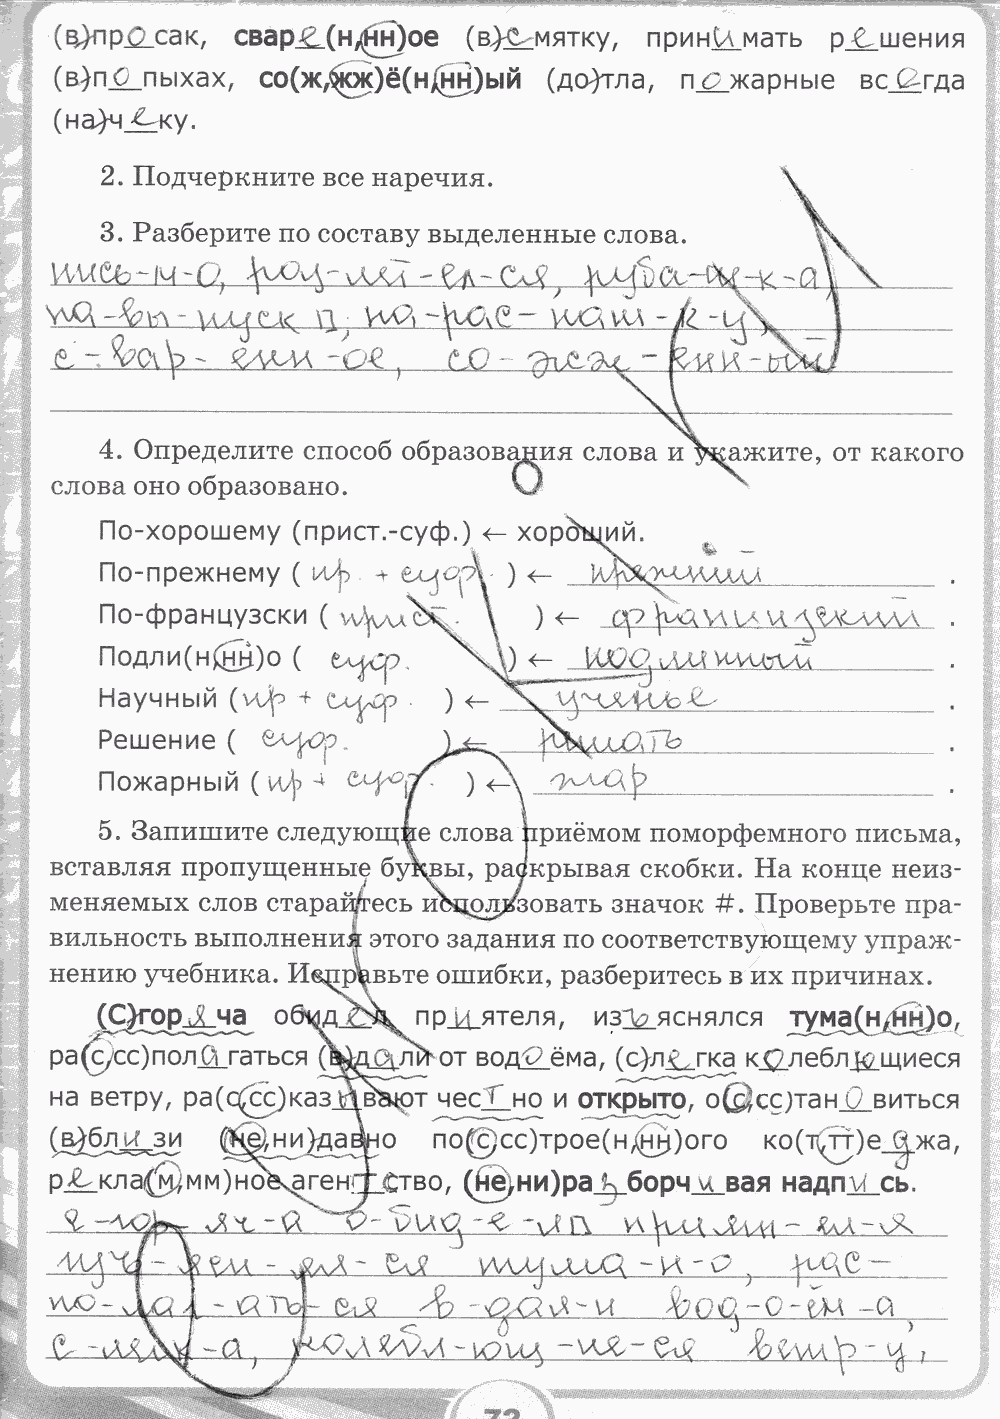 (в)пр_о_сак, свар_е_(н,нн)ое (в)_с_мятку, прин_и_мать р_е_шения
(в)п_о_пыхах, со(ж,жж)ё(н,нн)ый (до)тла, п_о_жарные вс_е_гда
(на)ч_е_ку.
2. Подчеркните все наречия.
3. Разберите по составу выделенные слова.
пись-м-о, раз-лет-ел-ся, руба-ш-к-а,
на-вы-пуск, на-рас-паш-к-у,
с-вар-енн-ое, со-жж-енн-ый
4. Определите способ образования слова и укажите, от какого
слова оно образовано.
По-хорошему (прист.-суф.) ← хороший.
По-прежнему ( пр. + суф. ) ← прежний .
По-французски ( прист. ) ← французский .
Подли(н,нн)о ( суф. ) ← подлинный .
Научный (пр + суф. ) ← ученье .
Решение ( суф. ) ← решать .
Пожарный ( пр + суф. ) ← жар .
5. Запишите следующие слова приёмом поморфемного письма,
вставляя пропущенные буквы, раскрывая скобки. На конце неиз-
меняемых слов старайтесь использовать значок #. Проверьте пра-
вильность выполнения этого задания по соответствующему упраж-
нению учебника. Исправьте ошибки, разберитесь в их причинах.
(С)гор_я_ча обид_е_л пр_и_ятеля, из_ъ_яснялся тума(н,нн)о,
ра(с,сс)пол_а_гаться (в)д_а_ли от вод_о_ёма, (с)л_е_гка к_о_лебл_ю_щиеся
на ветру, ра(с,сс)каз_ы_вают чес_т_но и открыто, о(с,сс)тан_о_виться
(в)бл_и_зи (не,ни)давно по(с,сс)трое(н,нн)ого ко(т,тт)е_д_жа,
р_е_кла(м,мм)ное аген_тс_тво, (не,ни)ра_з_борч_и_вая надп_и_сь.
с-гор-яч-а о-бид-е-л прият-ел-я
изъ-ясн-ял-ся тума-н-о, рас-
по-лаг-ать-ся в-дал-и вод-о-ём-а,
с-легк-а, колебл-ющ-ие-ся ветр-у,